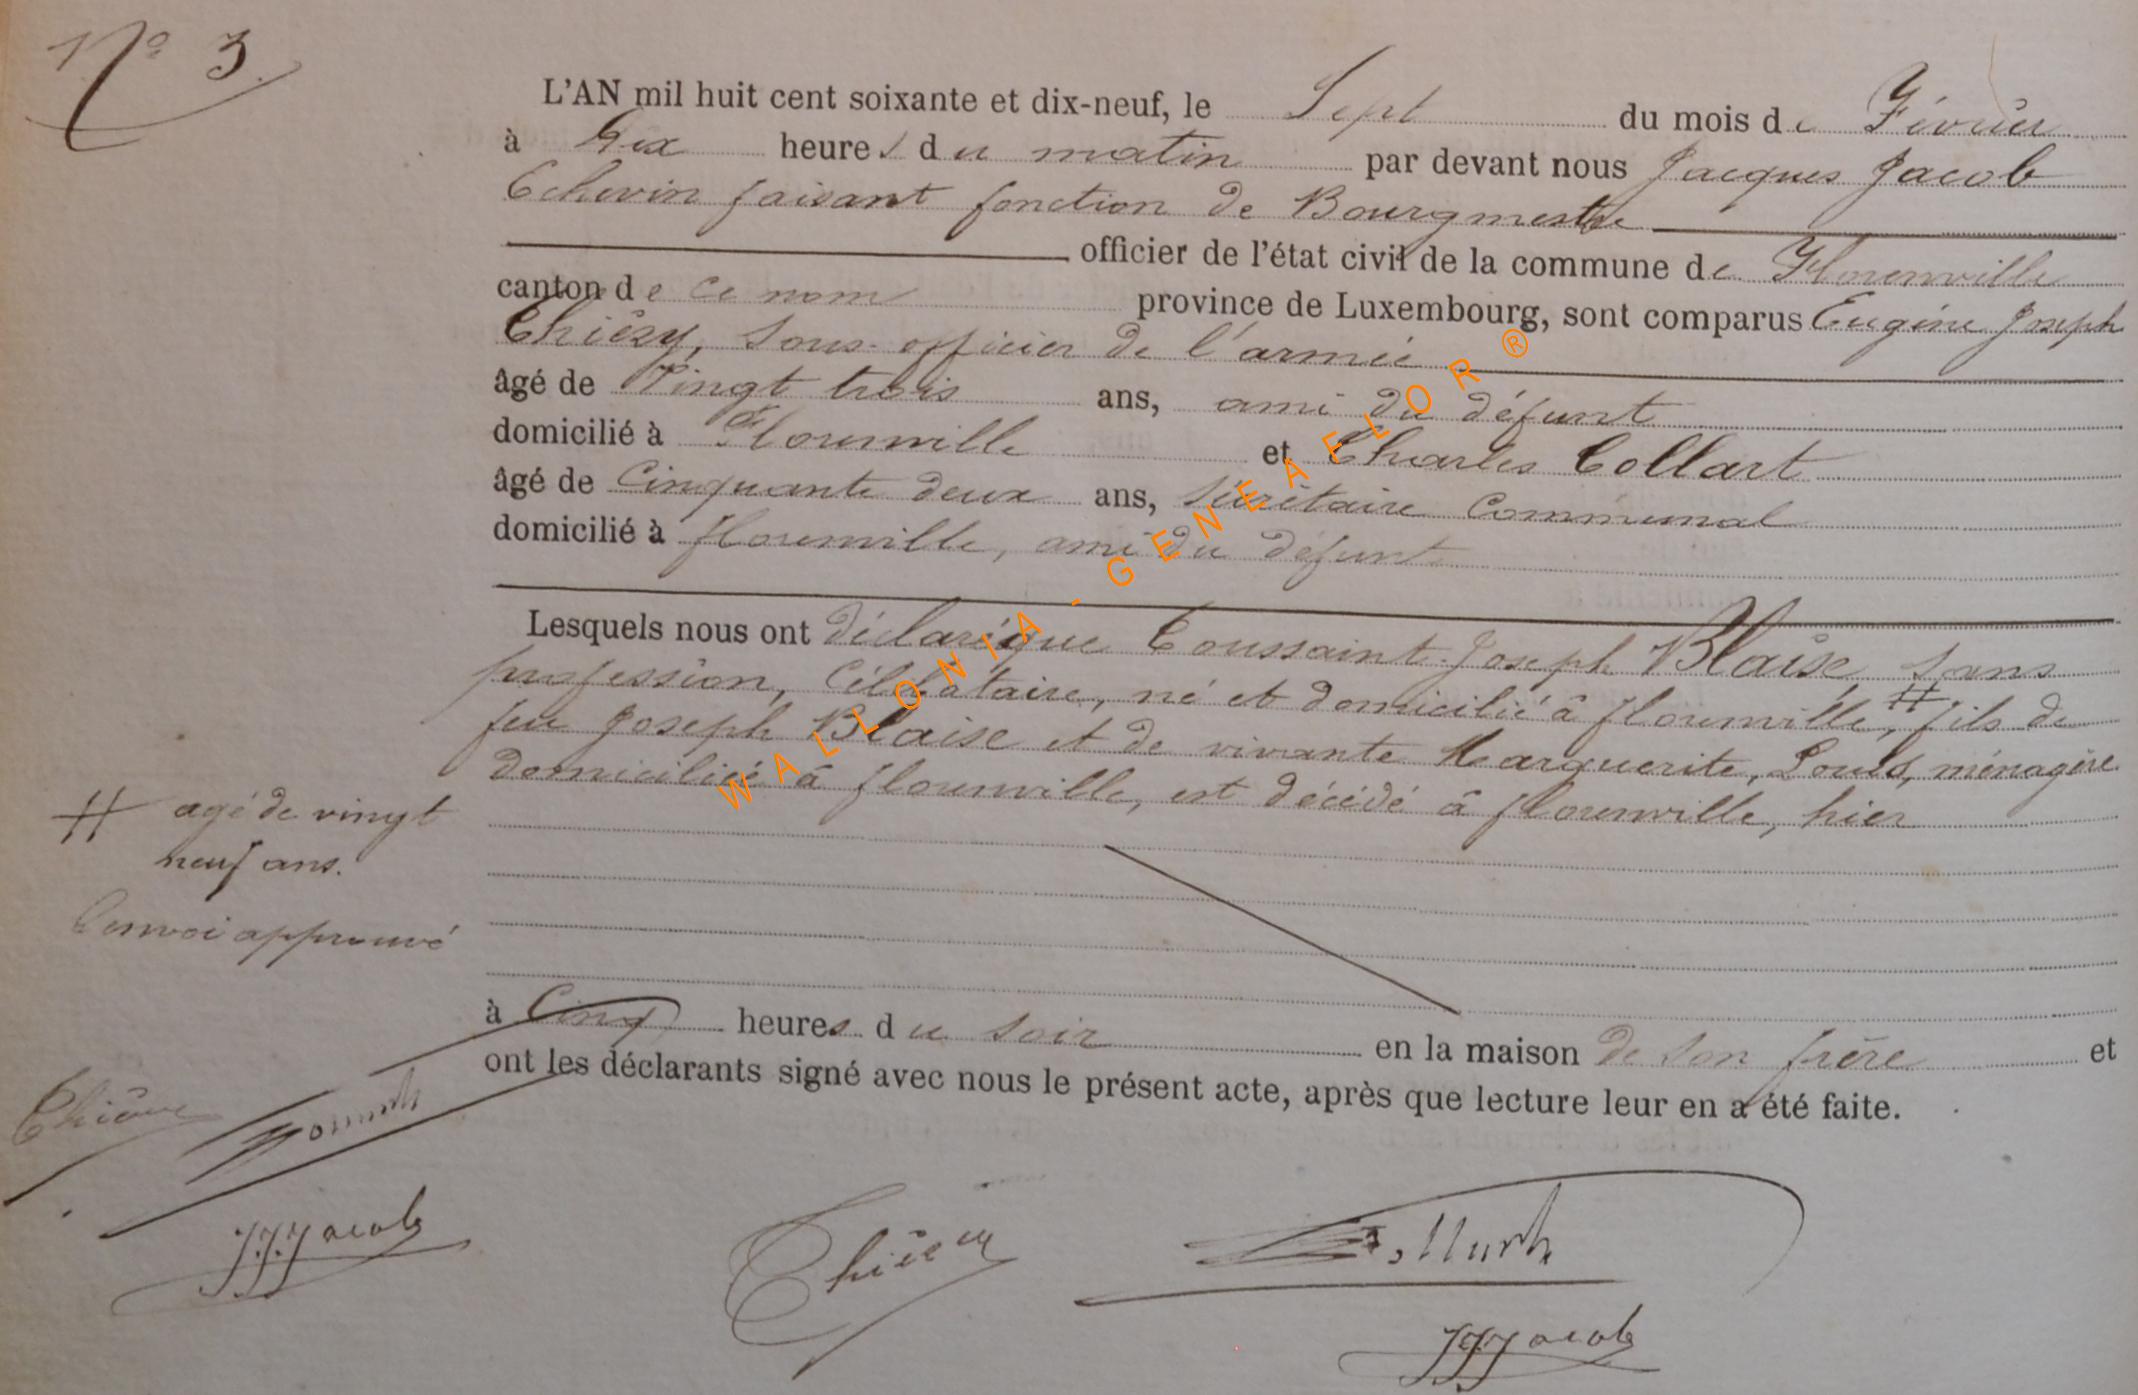 N° 3
L'AN mil huit cent soixante et dix-neuf, le Sept du mois de Février
à dix heures du matin par devant nous Jacques Jacob
Echevin faisant fonction de Bourgmestre
officier de l'état civil de la commune de Florenville
canton de ce nom province de Luxembourg, sont comparus Eugène Joseph
Thiéry, sous-officier de l'armée
âgé de Vingt trois ans, ami du défunt
domicilié à Florenville et Charles Collart
âgé de Cinquante deux ans, Secrétaire Communal
domicilié à florenville, ami du défunt
Lesquels nous ont déclaré que Toussaint Joseph Blaise sans
profession, Célibataire, né et domicilié à florenville, # fils de
feu Joseph Blaise et de vivante Marguerite, Louis, ménagère
domiciliée à florenville, est décédé à florenville, hier
# agé de vingt
neuf ans.
Renvoi approuvé
à Cinq heures du soir en la maison de son frère et
ont les déclarants signé avec nous le présent acte, après que lecture leur en a été faite.
Thiéry
J.J. Jacob
Thiéry Collart
J.J. Jacob
WALLONIA-GENEAFLOR ®